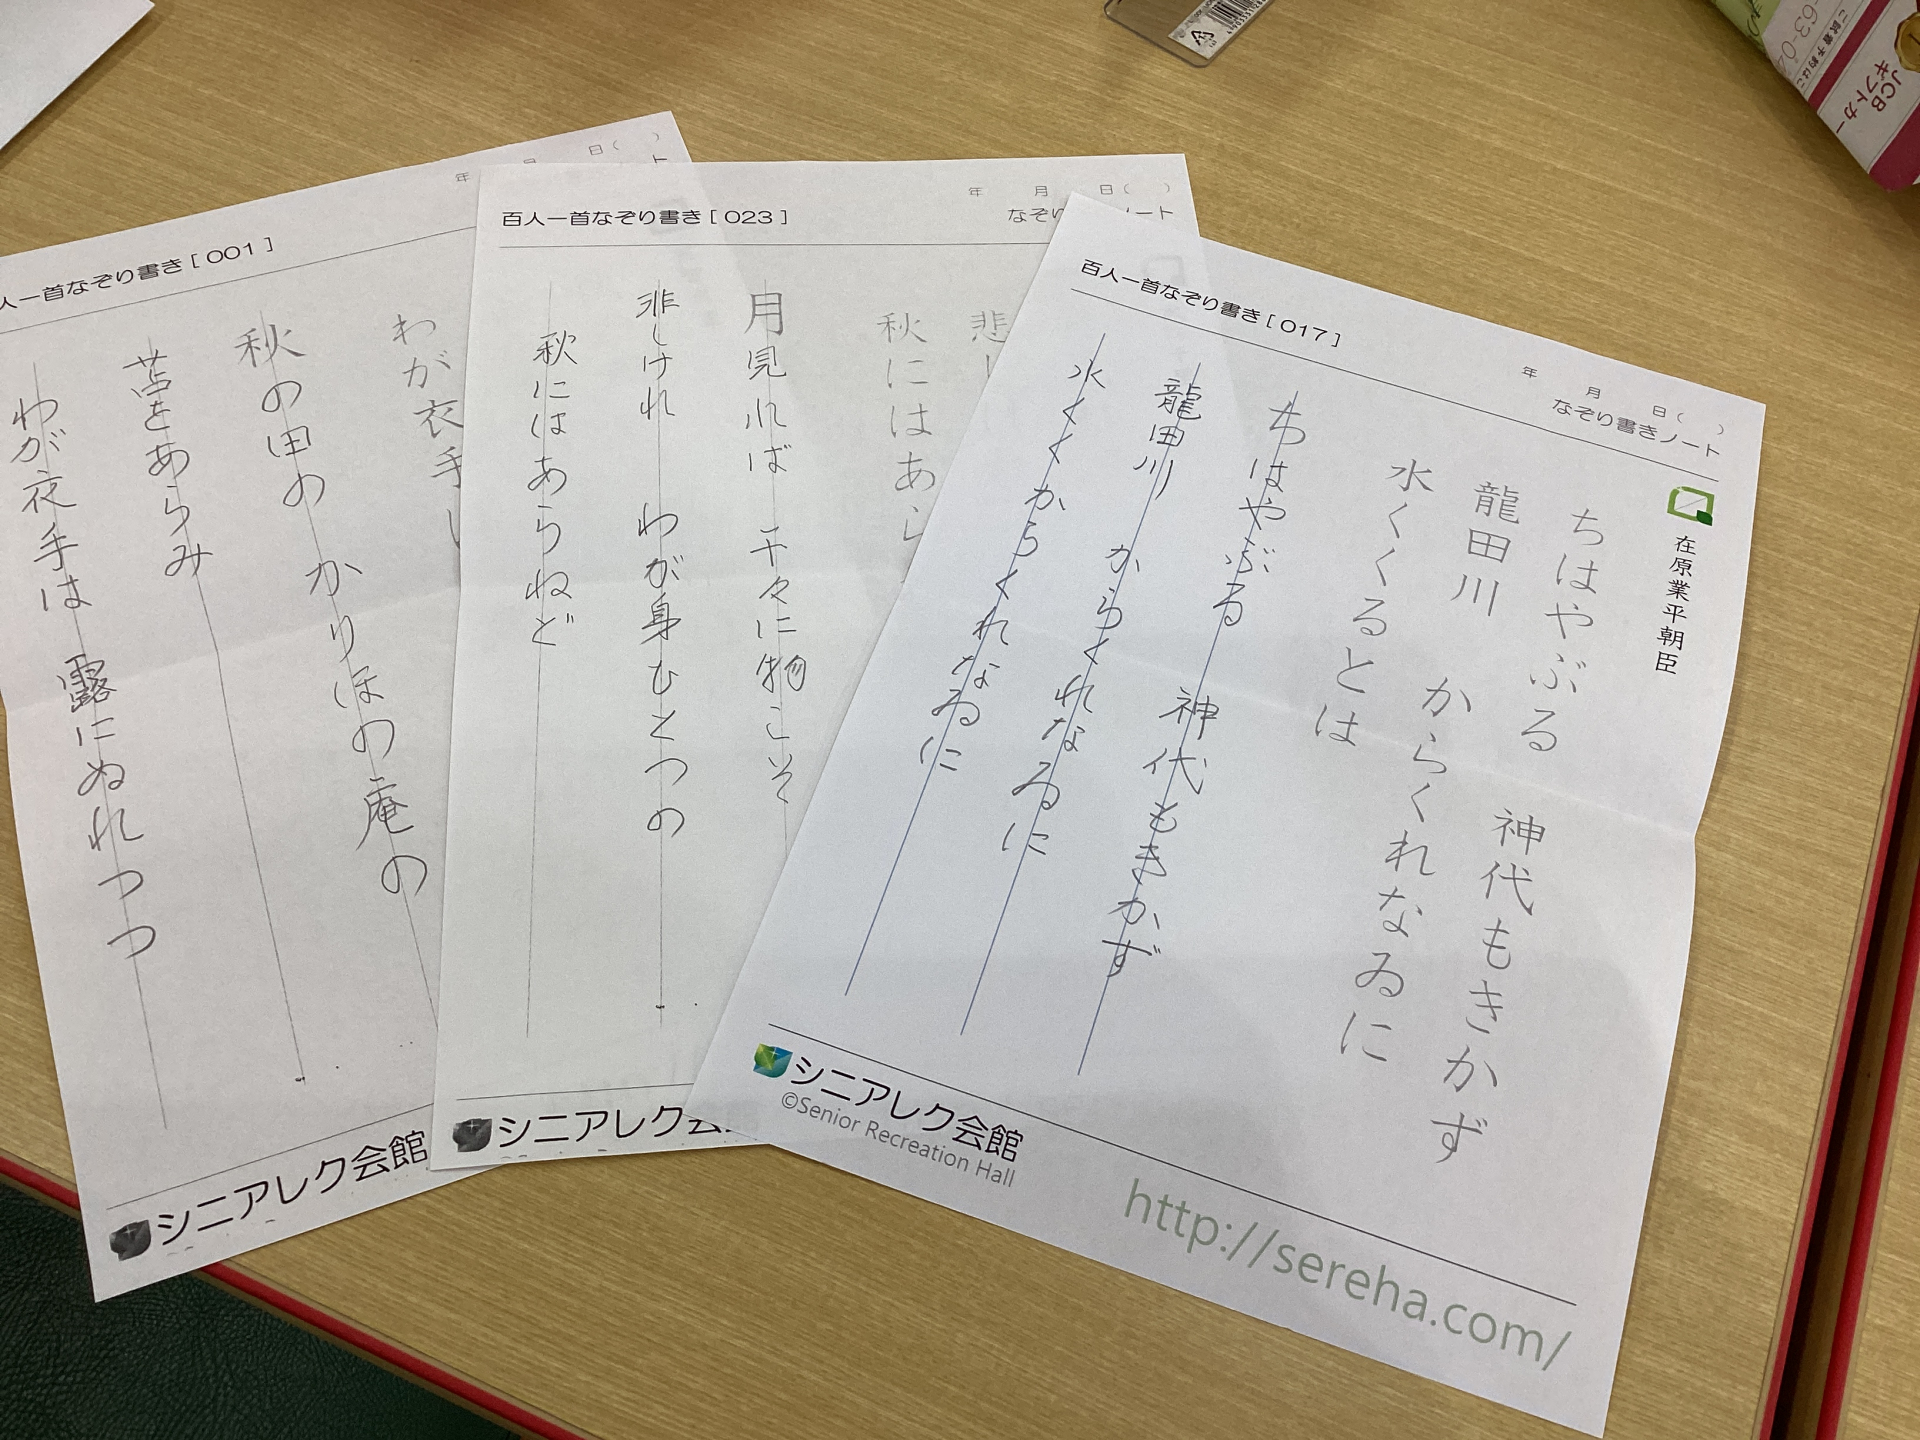 百人一首なぞり書き[017]
年 月 日( )
なぞり書きノート
在原業平朝臣
ちはやぶる 神代もきかず
龍田川 からくれなゐに
水くくるとは
ちはやぶる 神代もきかず
龍田川 からくれなゐに
水くくからくれなゐに
シニアレク会館
©Senior Recreation Hall
http://sereha.com/
百人一首なぞり書き[023]
年 月 日( )
なぞ
ート
悲し
秋にはあら
月見れば 千々に物こそ
悲しけれ わが身ひとつの
秋にはあらねど
シニアレク会
人一首なぞり書き[001]
年 月 日( )
ト
わが衣手
秋の田の かりほの庵の
苫をあらみ
わが衣手は 露にぬれつつ
シニアレク会館
JCB
ギフトカー